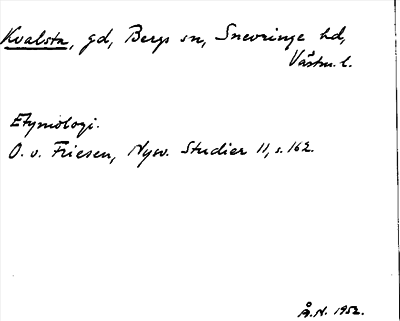 Kvalsta, gd, Bergs sn, Snevringe hd,
Västm. l.
Etymologi.
O. v. Friesen, Nysv. Studier 11, s. 162.
Å. N. 1952.